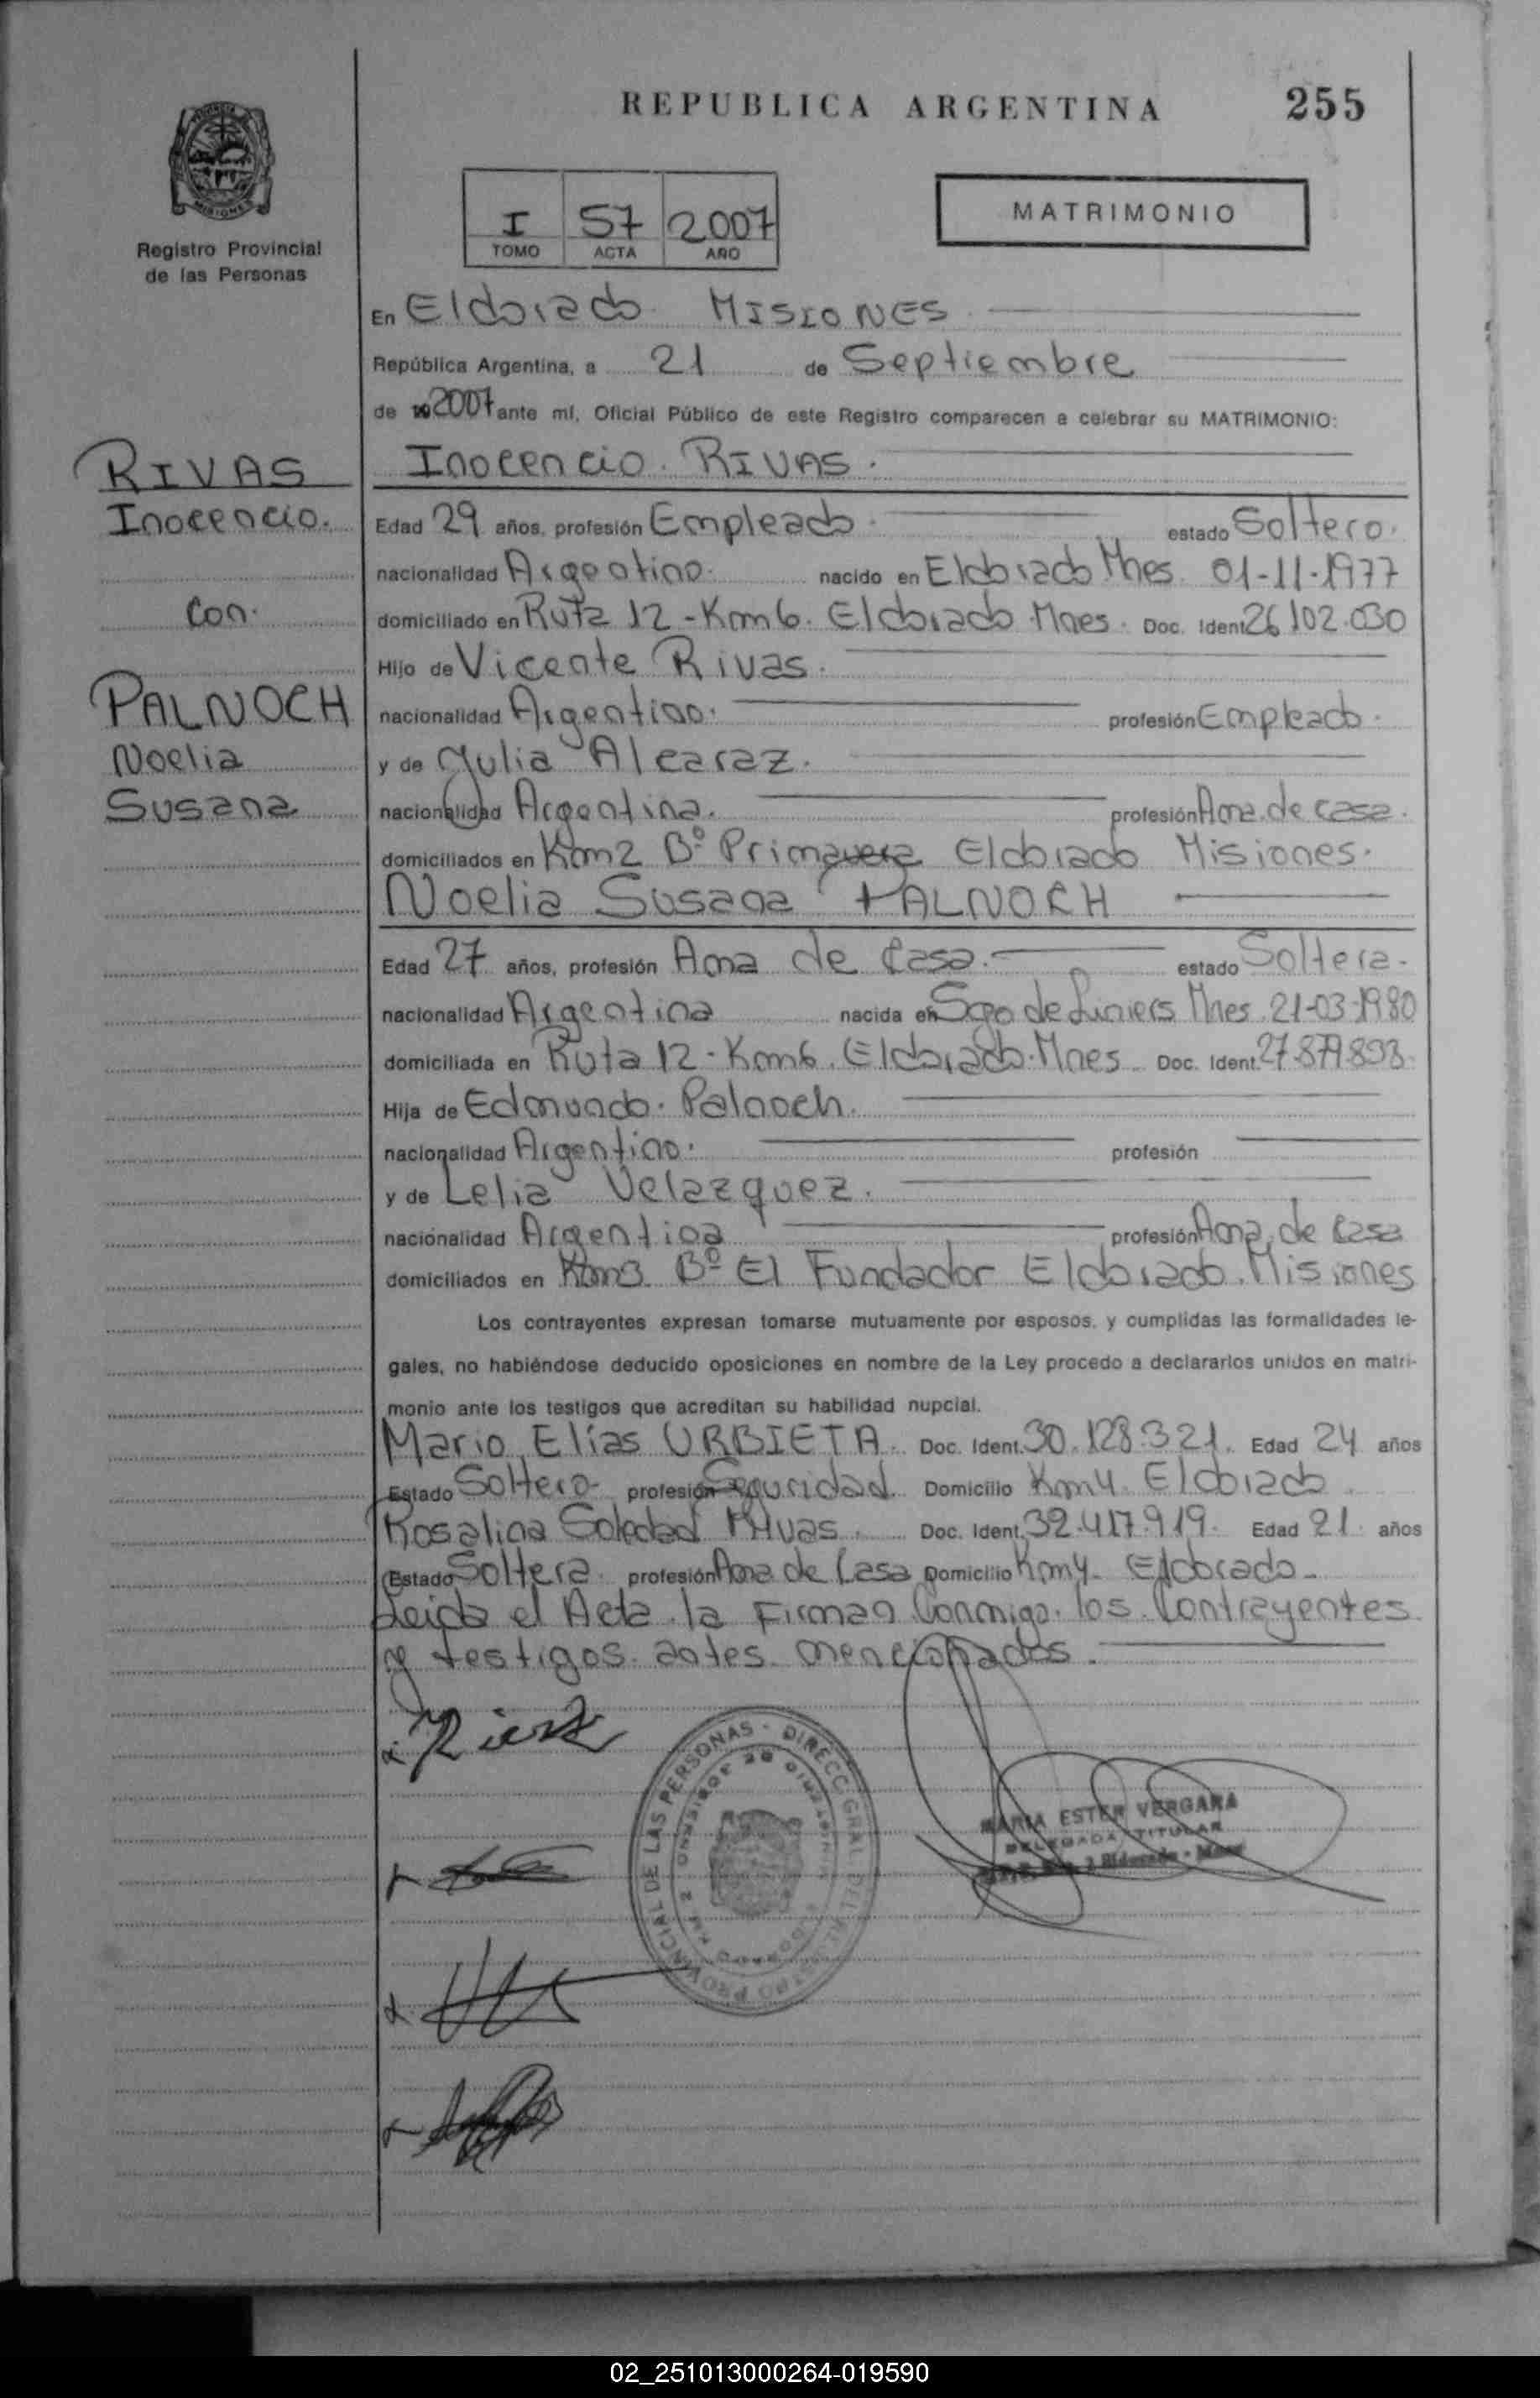 REPUBLICA ARGENTINA
255
Registro Provincial
de las Personas
I 57 2007
TOMO ACTA AÑO
MATRIMONIO
En Eldorado Misiones
República Argentina, a 21 de Septiembre
de 2007 ante mí, Oficial Público de este Registro comparecen a celebrar su MATRIMONIO:
RIVAS
Inocencio.
Con.
PALNOCH
Noelia
Susana
Inocencio. RIVAS.
Edad 29 años, profesión Empleado. estado Soltero.
nacionalidad Argentino. nacido en Eldorado Mnes. 01-11-1977
domiciliado en Ruta 12 - Km 6. Eldorado. Mnes. Doc. Ident. 26.102.030
Hijo de Vicente Rivas.
nacionalidad Argentino. profesión Empleado.
y de Julia Alcaraz.
nacionalidad Argentina. profesión Ama de casa.
domiciliados en Km 2 Bº Primavera Eldorado Misiones.
Noelia Susana PALNOCH
Edad 27 años, profesión Ama de Casa. estado Soltera.
nacionalidad Argentina nacida en Sgo de Liniers Mnes. 21-03-1980
domiciliada en Ruta 12 - Km 6. Eldorado. Mnes. Doc. Ident. 27.879.898.
Hija de Edmundo. Palnoch.
nacionalidad Argentino. profesión
y de Lelia Velazquez.
nacionalidad Argentina profesión Ama de Casa
domiciliados en Km 3 Bº El Fundador Eldorado. Misiones
Los contrayentes expresan tomarse mutuamente por esposos, y cumplidas las formalidades le-
gales, no habiéndose deducido oposiciones en nombre de la Ley procedo a declararlos unidos en matri-
monio ante los testigos que acreditan su habilidad nupcial.
Mario Elías URBIETA. Doc. Ident. 30.128.321. Edad 24 años
Estado Soltero- profesión Seguridad. Domicilio Km 4. Eldorado.
Rosalina Soledad Rivas. Doc. Ident. 32.417.919. Edad 21 años
Estado Soltera. profesión Ama de Casa Domicilio Km 4. Eldorado-
Leida el Acta. la Firman. Conmigo. los. Contrayentes
y testigos. antes. mencionados.
REGISTRO PROVINCIAL DE LAS PERSONAS - DIRECC. GRAL. DEL
MARIA ESTER VERGARA
DELEGADA TITULAR
02_251013000264-019590